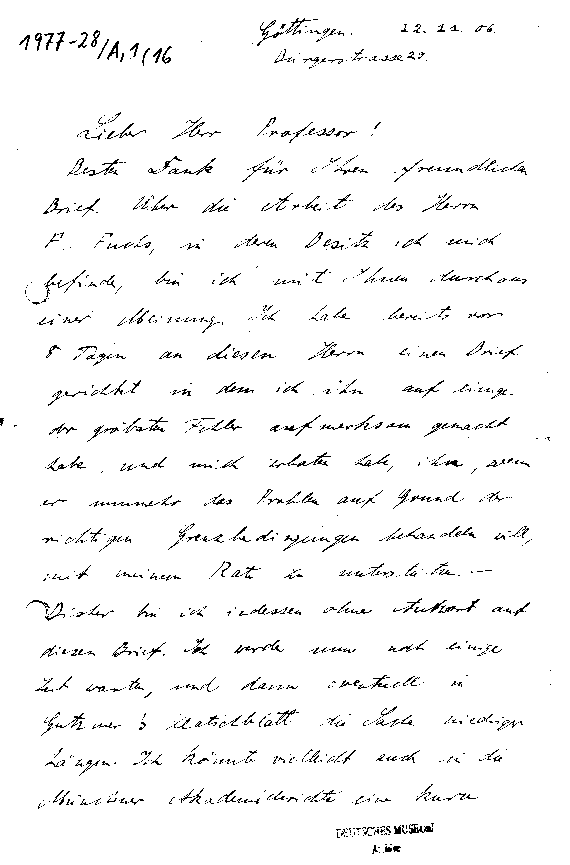 1977-28/A,1(16
Göttingen. 12.11.06.
Bürgerstrasse 29.
Lieber Herr Professor!
Besten Dank für Ihren freundlichen
Brief. Über die Arbeit des Herrn
P. Fuchs, in deren Besitz ich mich
befinde, bin ich mit Ihnen durchaus
einer Meinung. Ich habe bereits vor
8 Tagen an diesen Herrn einen Brief
gerichtet in dem ich ihn auf einige
der gröbsten Fehler aufmerksam gemacht
habe, und mich erboten habe, ihn, wenn
er nunmehr das Problem auf Grund der
richtigen Grenzbedingungen behandeln will,
mit meinem Rate zu unterstützen. —
Bisher bin ich indessen ohne Antwort auf
diesen Brief. Ich werde nun noch einige
Zeit warten, und dann eventuell in
Gutzmer's die Sache niedriger
hängen. Ich könnte vielleicht auch in die
Münchner Akademieberichte eine kurze
DEUTSCHES MUSEUM
Archiv